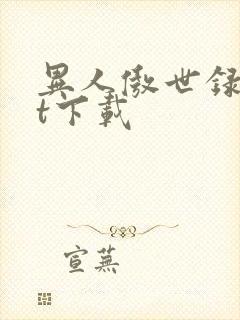 異人傲世録
t下載
宣蕪